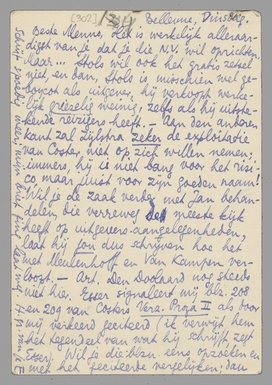 [302]
Bellevue, Dinsdag.
Beste Menno, Het is werkelijk alleraar-
digst van je dat je die N.V. wil oprichten.
Maar... Stols wil ook het gratis zetsel
niet, en dan, Stols is misschien met ge-
doycot als uitgever, hij verkoopt werke-
lijk griezelig weinig, zelfs als hij uitste-
kende reizigers heeft. — Van den anderen
kant zal Zijlstra zeker de exploitatie
van Coster niet op zich willen nemen;
immers, hij is niet bang voor het risi-
co maar juist voor zijn goeden naam!
Wil je de zaak verder met Jan behan-
delen die verreweg de meeste kijk
heeft op uitgevers-aangelegenheden,
laat hij jou dus schrijven hoe het
met Meulenhoff en Van Kampen ver-
loopt. — Art. Den Doolaard nog steeds
niet hier. Esser signaleert mij blz. 208
en 209 van Costers Verz. Proza II als door
mij verkeerd geciteerd (ik verwijt hem
het tegendeel van wat hij schrijft zegt
Esser). Wil jij die blzn. eens opzoeken en
met het geciteerde vergelijken; dan